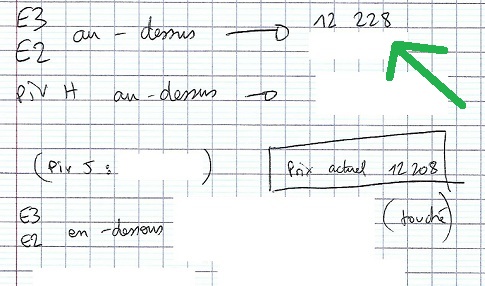 E3
E2 au-dessus → 12 228
PIV H au-dessus →
(Piv J : )
Prix actuel 12 208
(touché)
E3
E2 en-dessous